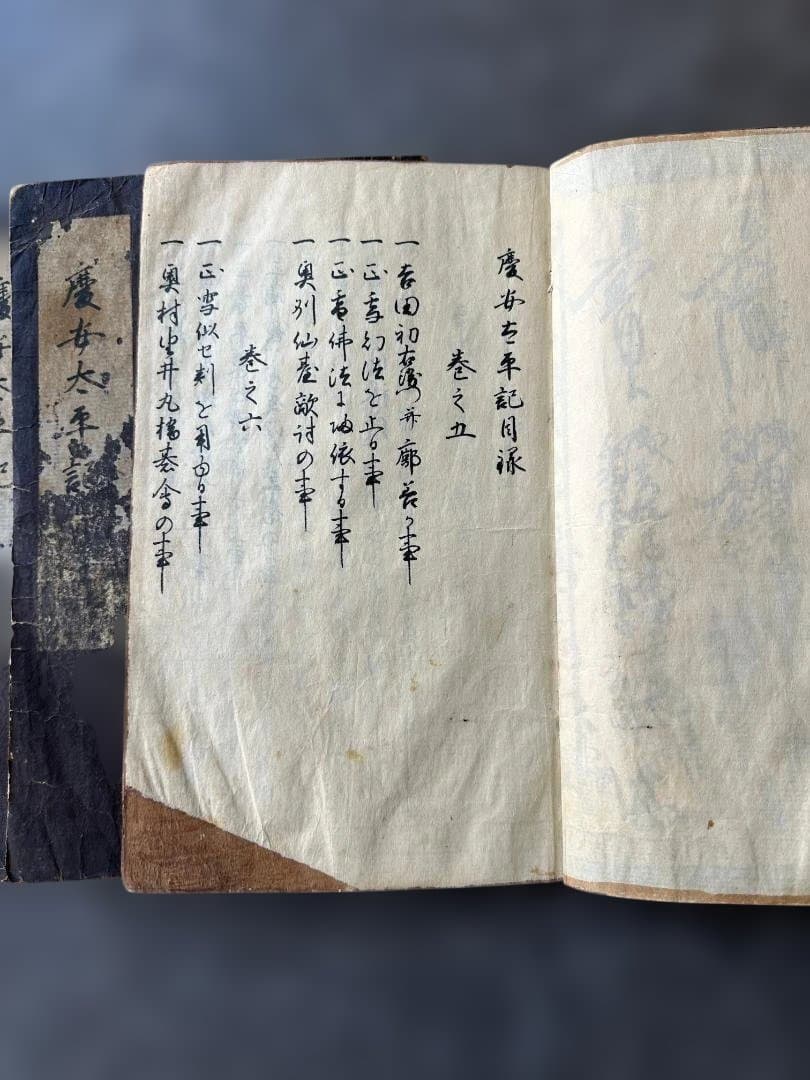 慶安太平記目録
巻之五
一吉田初右衛門并廓若ヶ事
一正雪幻法を止る事
一正雪佛法に帰依する事
一奥州仙臺敵討の事
巻之六
一正雪似せ判を用る事
一奥村 井九橋碁會の事
慶安太平記